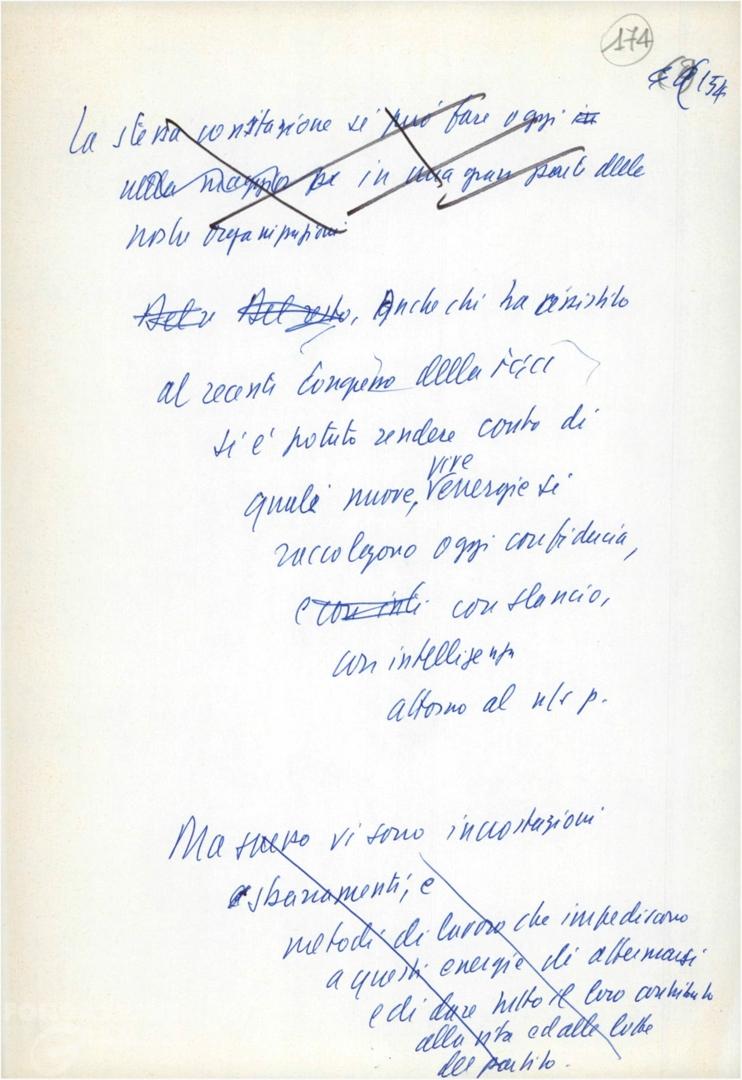 174
154
La stessa constatazione si può fare oggi in
nella maggio pa in una gran parte delle
nostre organizzazioni
Del re Del resto, Anche chi ha assistito
al recente Congresso della FGCI
si è potuto rendere conto di
quale nuove, vive energie si
raccolgono oggi con fiducia,
e con inte con slancio,
con intelligenza
attorno al n/s p.
Ma spesso vi sono incrostazioni
e sbarramenti, e
metodi di lavoro che impediscono
a queste energie di affermarsi
e di dare tutto il loro contributo
alla vita ed alle lotte
del partito.